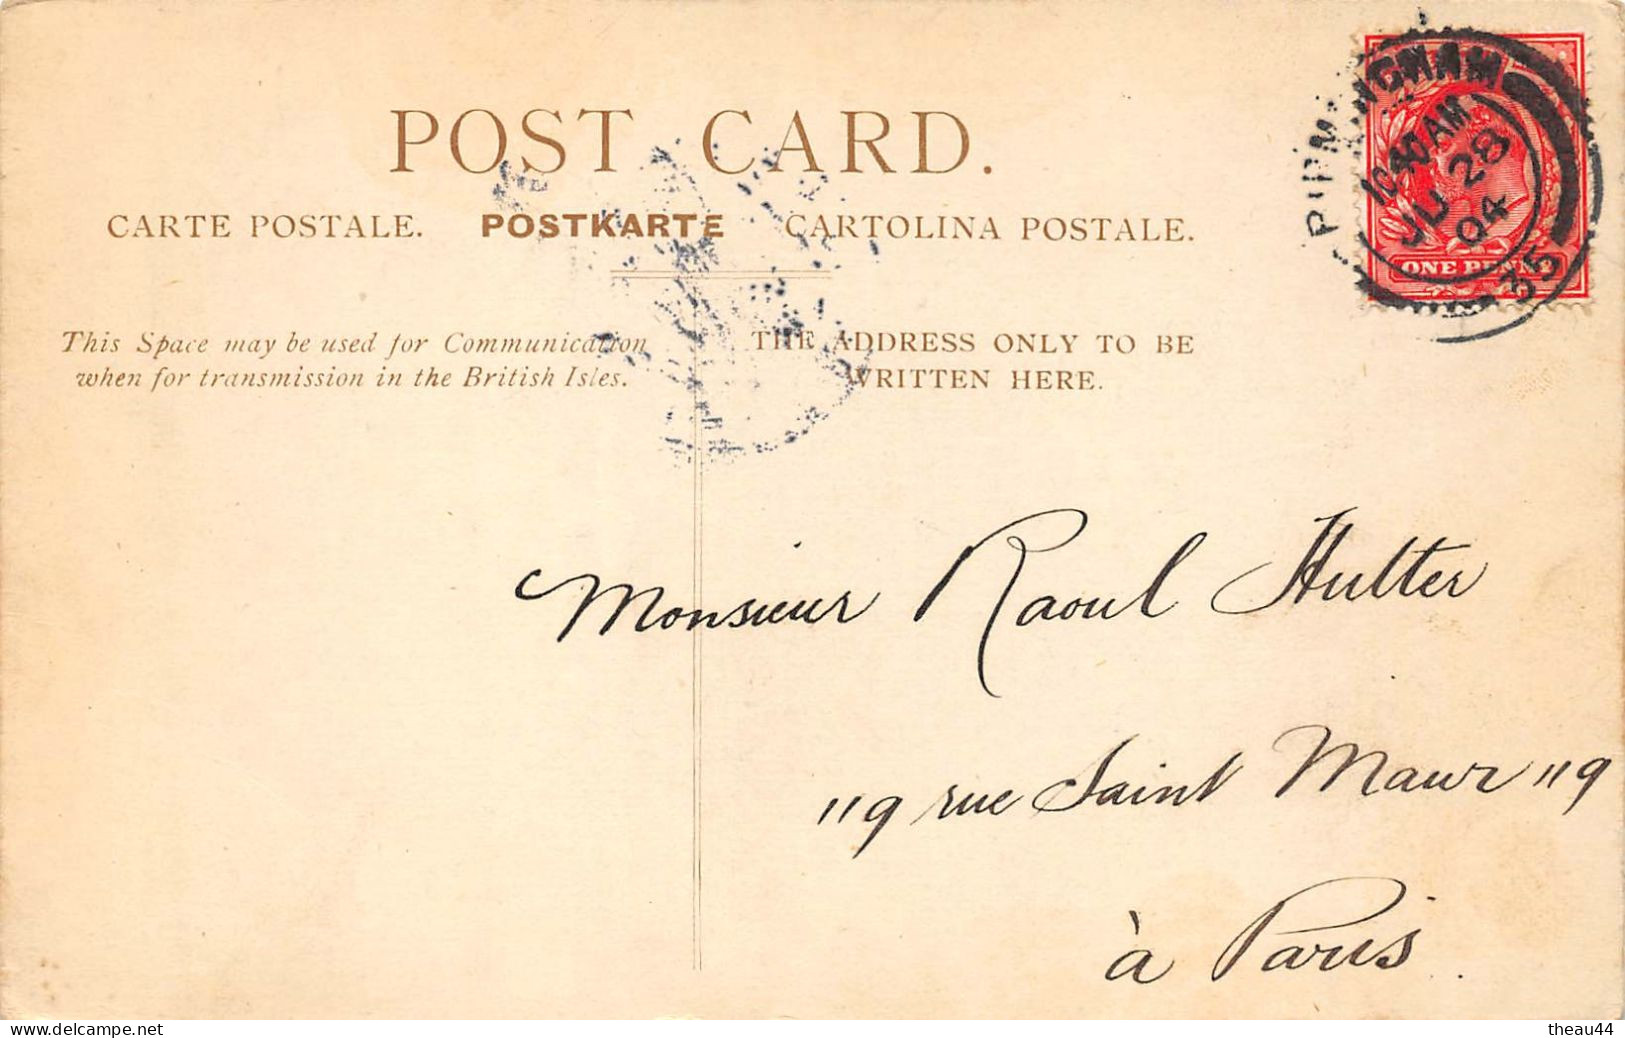 POST CARD.
CARTE POSTALE. POSTKARTE CARTOLINA POSTALE.
This Space may be used for Communication
when for transmission in the British Isles.
THE ADDRESS ONLY TO BE
WRITTEN HERE.
BIRMINGHAM
10 40 AM
JU 28
04
35
ONE PENNY
Monsieur Raoul Hutter
119 rue Saint Maur 119
à Paris.
www.delcampe.net
theau44